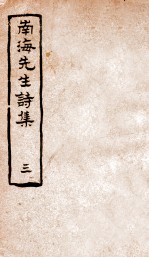 南海先生詩集
三